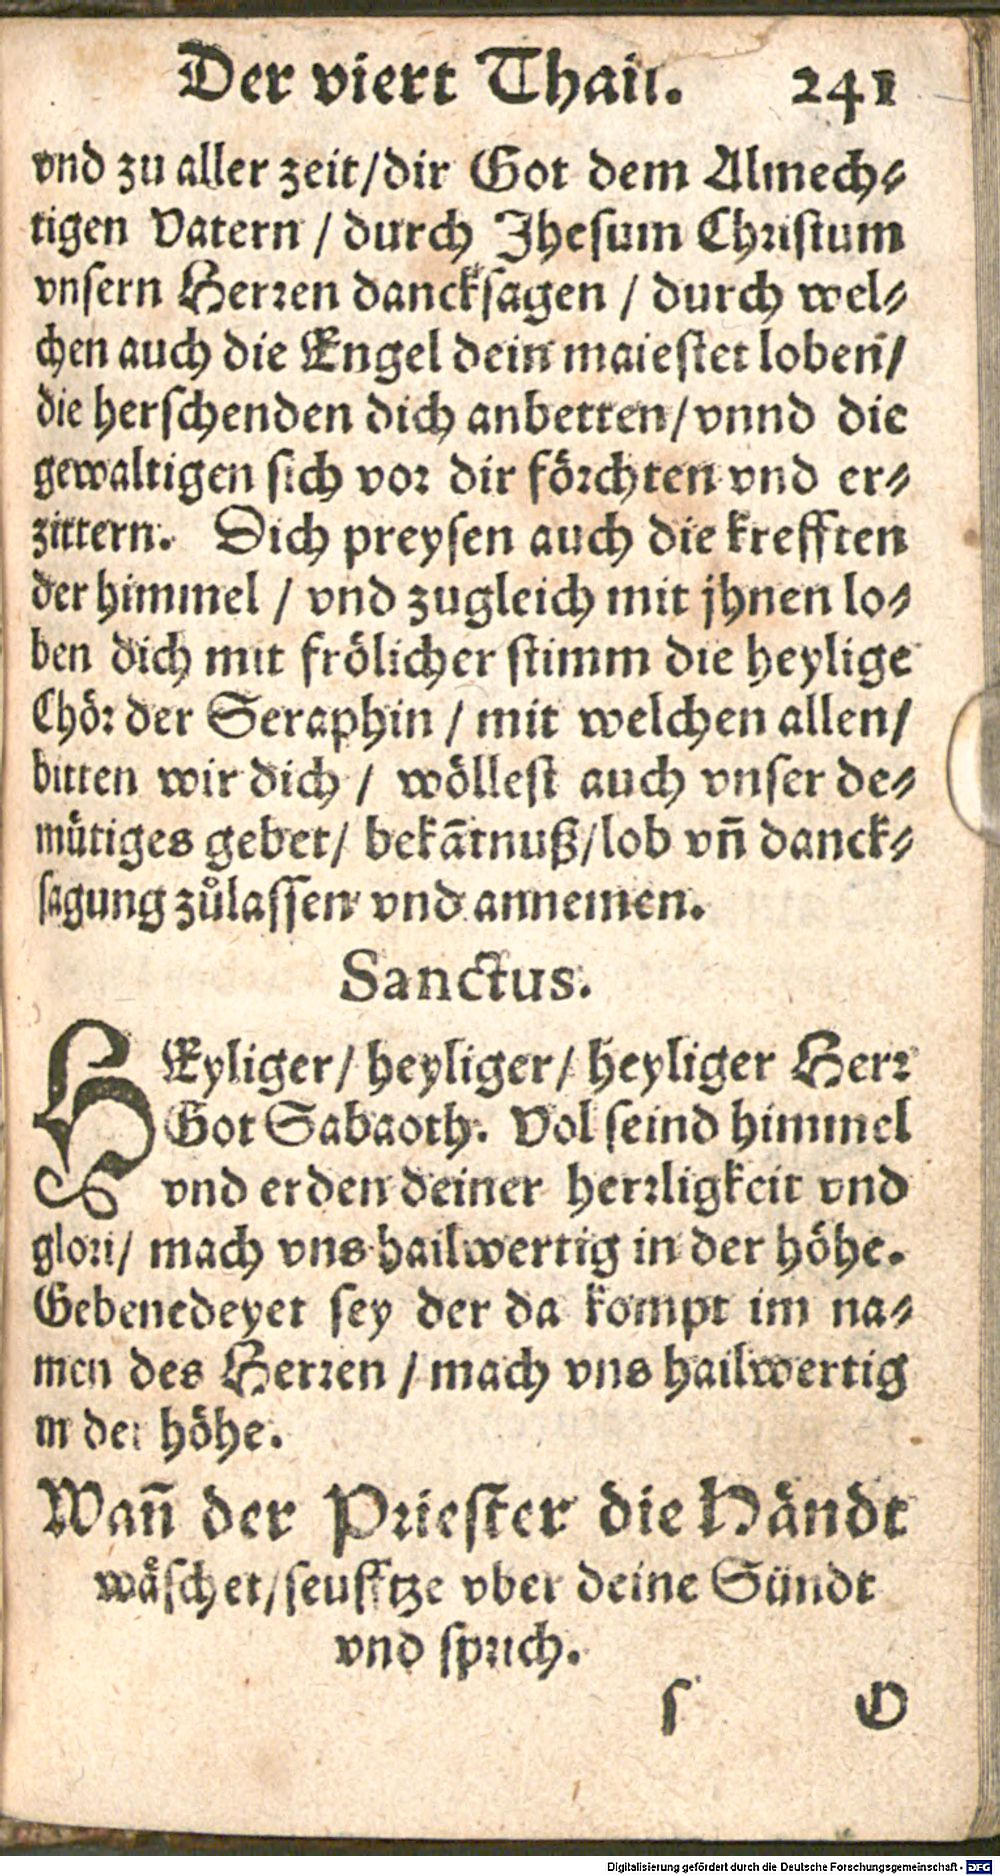 Der viert Thail. 241
vnd zu aller zeit/dir Got dem Almech⸗
tigen Vatern / durch Jhesum Christum
vnsern Herren dancksagen / durch wel⸗
chen auch die Engel dein maiestet loben/
die herschenden dich anbetten/vnnd die
gewaltigen sich vor dir förchten vnd er⸗
zittern. Dich preysen auch die krefften
der himmel / vnd zugleich mit jhnen lo⸗
ben dich mit frölicher stimm die heylige
Chör der Seraphin / mit welchen allen/
bitten wir dich / wöllest auch vnser de⸗
mütiges gebet/ bekãtnuß/lob vñ danck⸗
sagung zůlassen vnd annemen.
Sanctus.
HEyliger/ heyliger/ heyliger Herr
Got Sabaoth. Vol seind himmel
vnd erden deiner herrligkeit vnd
glori/ mach vns hailwertig in der höhe.
Gebenedeyet sey der da kompt im na⸗
men des Herren / mach vns hailwertig
in der höhe.
Wañ der Priester die Händt
wäschet/seufftze vber deine Sündt
vnd sprich.
s O
Digitalisierung gefördert durch die Deutsche Forschungsgemeinschaft - DFG